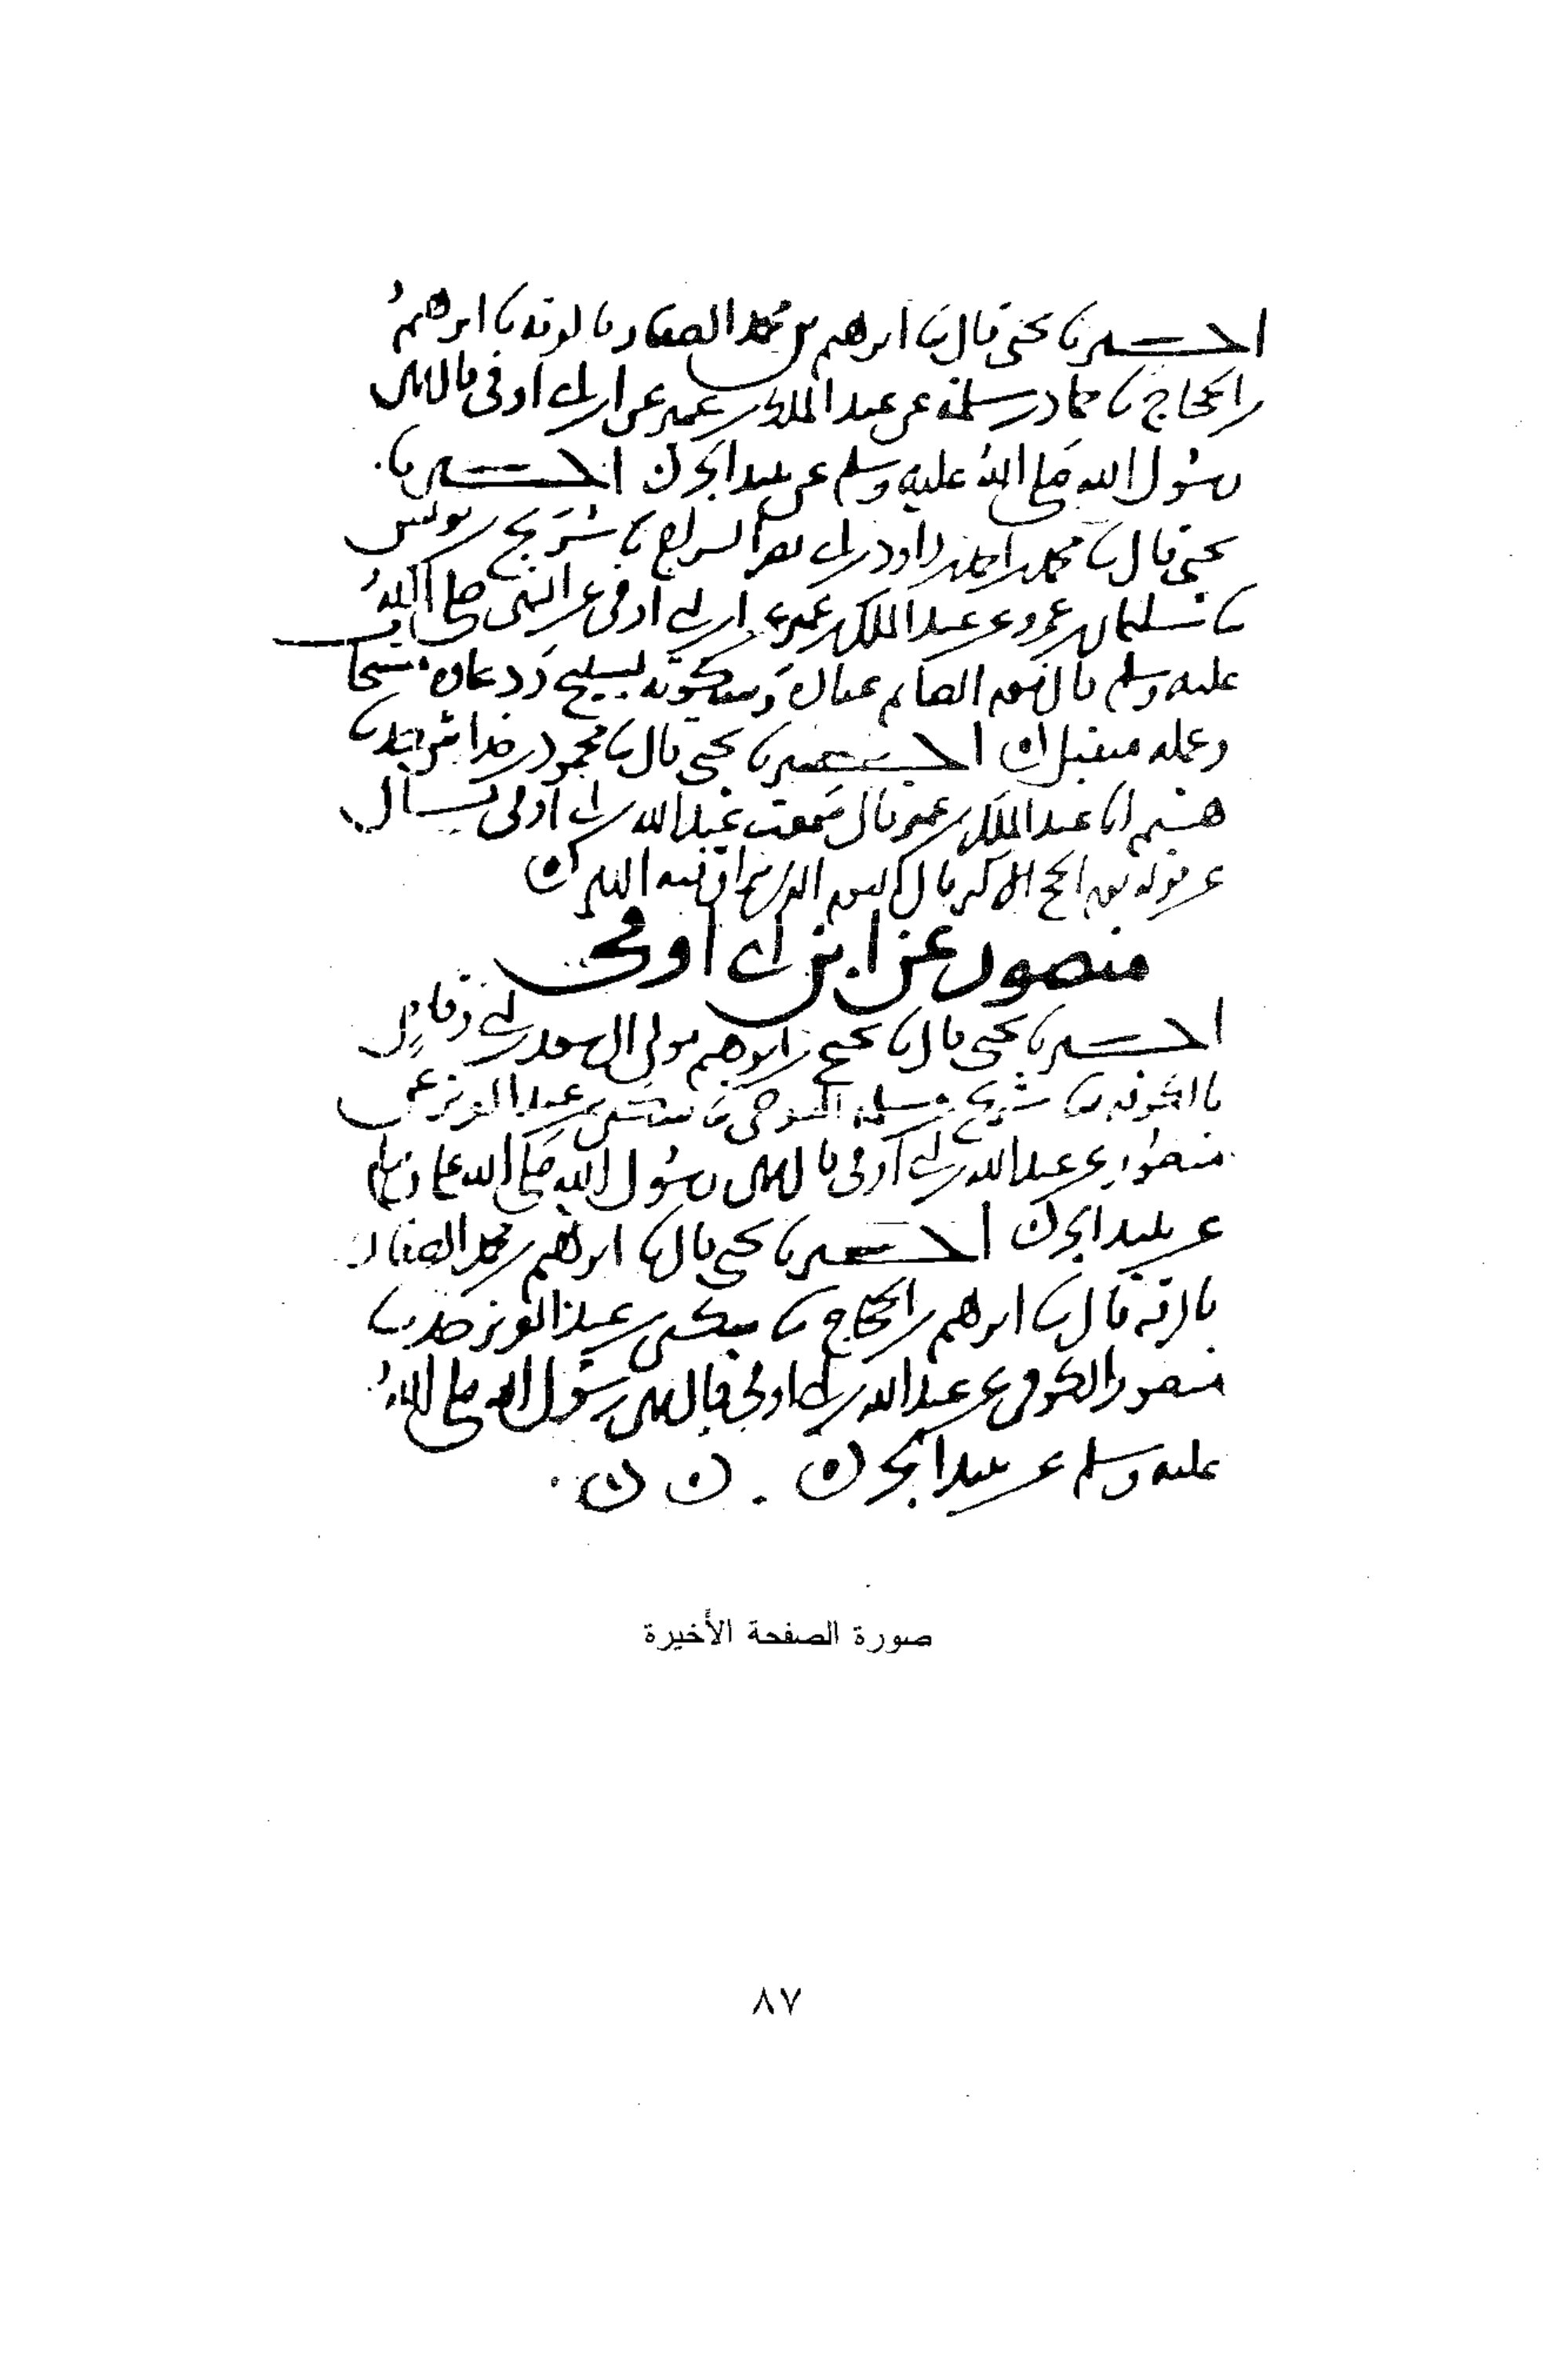 اخبرنا يحيى قال نا ابرهيم بن محمد الصفار بالرقه نا ابرهيم
بن الحجاج نا حماد بن سلمة عن عبد الملك بن عمير عن ابن ابي اوفى قال نهى
رسول الله صلى الله عليه وسلم عن نبيذ الجر اخبرنا
يحيى قال نا محمد بن احمد بن داود بن السراج نا شريح بن يونس
نا سليمان بن عمرو عن عبد الملك بن عمير عن ابن ابي اوفى عن النبي صلى الله
عليه وسلم قال نوم الصائم عبادة وسكوته تسبيح ودعاؤه مستجاب
وعمله متقبل اخبرنا يحيى قال نا محمود بن خداش حدثنا
هشيم انا عبد الملك بن عمير قال سمعت عبد الله بن ابي اوفى يسأل
عن قوله يوم الحج الاكبر قال اليوم الذي يهراق فيه الدم
منصور عن ابن ابي اوفى
اخبرنا يحيى قال نا يحيى بن ابرهيم مولى ال سعد بن ابي وقاص
بالكوفه نا شريح بن مسلمه التنوخي نا عبد العزيز عن
منصور عن عبد الله بن ابي اوفى قال نهى رسول الله صلى الله عليه وسلم
عن نبيذ الجر اخبرنا يحيى قال نا ابرهيم بن محمد الصفار
بالرقه قال نا ابرهيم بن الحجاج نا بن عبد العزيز حدثنا
منصور الكوفي عن عبد الله بن ابي اوفى قال نهى رسول الله صلى الله
عليه وسلم عن نبيذ الجر
صورة الصفحة الأخيرة
٨٧